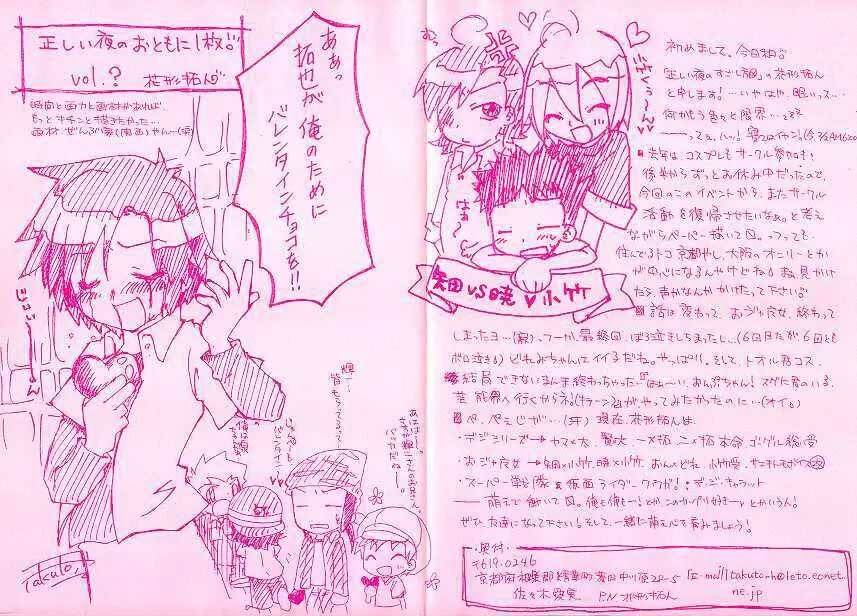 正しい夜のおともに1枚。
vol.? 花形拓んぴ
時間と画力と画材があれば、
もっとキチンと描きたかった…
ああっ
拓也が俺のために
バレンタインチョコを!!
じぃーーん
矢田 VS 暁 ♥ 小竹
初めまして。今日和。
「正しい夜のすごし方」の花形拓ん
と申します!…いやはや、眠いっス…
何かもう色々と限界…
■去年は、コスプレもサークル参加も
後半からずっとお休み中だったので、
今回のこのイベントから、またサークル
活動を復帰させたいなぁ。と考え
ながらペーパー描いて
住んでるトコ京都やし、大阪のオンリーとか
が中心になるんやけどね。まぁ見かけ
たら、声かなんかかけたって下さい。
■話は変わって、おジャ魔女、終わって
しまったヨ…(寂)、つーか、最終回、ぼろ泣きしちまったし…(6回見たが6回とも
ボロ泣き) どれみちゃんはイイ子だね。やっぱり。そして、トオル君コス、
結局できないまんま終わっちゃった。『はぁ〜い、おんぷちゃん! スグに君のいる、
芸能界へ行くからネ!(キラーン)』がやってみたかったのに…(オイ。)
■ペ、ぺぇじが…(汗) 現在、花形拓んは
・デジシリーズ→ヤマ×太、賢大、一×拓、二×拓 本命。ゴーグル総受
・おジャ魔女→矢田×小竹、暁×小竹、おん×どれ、小竹受、
・スーパー戦隊&仮面ライダークウガ!、デ・ジ・キャラット
――萌えで働いて 。俺も俺も〜!とか、このカップリ好き〜ッとかいう人!
ぜひ、友達になって下さい!そして、一緒に萌え心を育みましょう!
輝一…
皆もらってるって…
あははー。
さすが輝二さんのお兄さん。
バッカだねー。
じゅんぺーも、
バレンタイン♥
俺は娘
takuto,
奥付
〒619-0246
E-mail takuto-h@leto.eonet.
ne.jp
佐々木愛実 P.N 花形拓ん